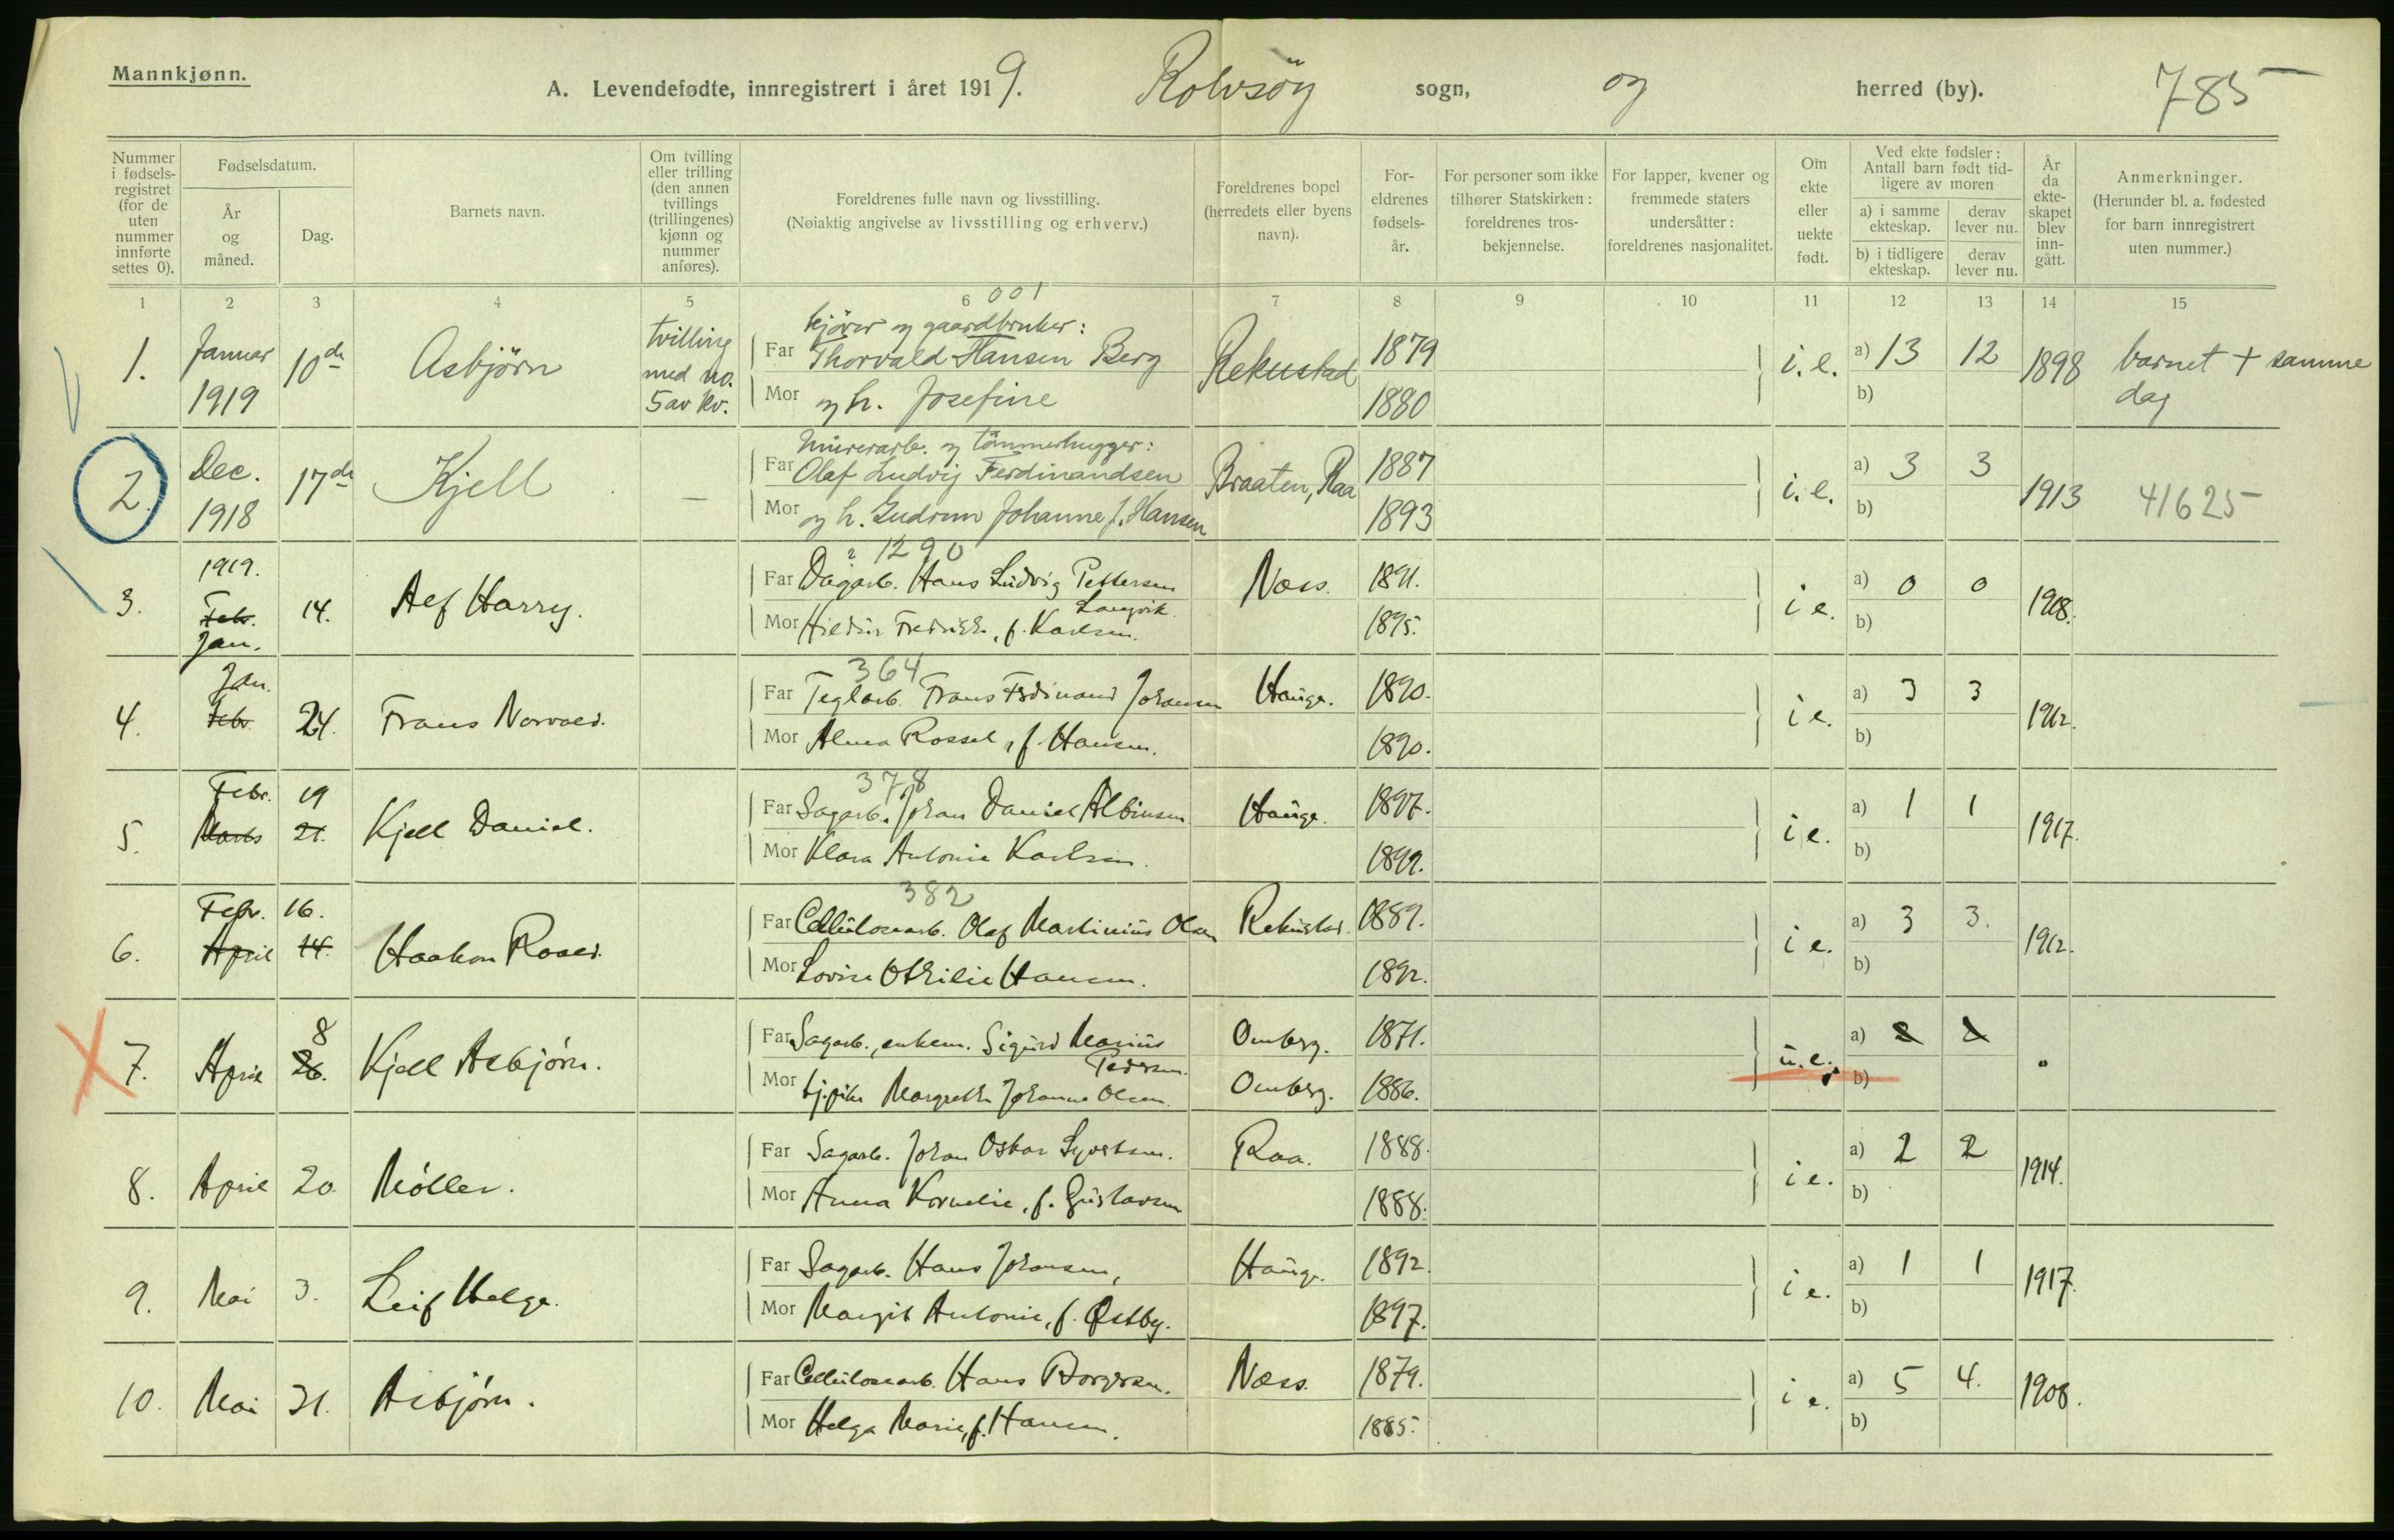 Mannkjønn.
A. Levendefødte, innregistrert i året 1919. Rolvsöy sogn, og herred (by). 785
Nummer i fødsels-registret (for de uten nummer innførte settes 0).
Fødselsdatum.
År og måned.
Dag.
Barnets navn.
Om tvilling eller trilling (den annen tvillings (trillingenes) kjønn og nummer anføres).
Foreldrenes fulle navn og livsstilling.
(Nøiaktig angivelse av livsstilling og erhverv.)
Foreldrenes bopel (herredets eller byens navn).
For-eldrenes fødsels-år.
For personer som ikke tilhører Statskirken: foreldrenes tros-bekjennelse.
For lapper, kvener og fremmede staters undersåtter: foreldrenes nasjonalitet.
Om ekte eller uekte født.
Ved ekte fødsler: Antall barn født tid-ligere av moren
a) i samme ekteskap.
derav lever nu.
b) i tidligere ekteskap.
derav lever nu.
År da ekte-skapet blev inn-gått.
Anmerkninger.
(Herunder bl. a. fødested for barn innregistrert uten nummer.)
1 2 3 4 5 6 7 8 9 10 11 12 13 14 15
001
kjörer og gaardbruker:
1. Januar 1919 10de Asbjörn tvilling med no. 5 av kv.
Far Thorvald Hansen Berg Rekustad 1879 i. e. a) 13 12 1898 barnet + samme dag
Mor og h. Josefine 1880 b)
Murerarb. og tömmerhugger:
2. Dec. 1918 17de Kjell —
Far Olaf Ludvig Ferdinandsen Braaten, Raa 1887 i. e. a) 3 3 1913 41625
Mor og h. Gudrun Johanne f. Hansen 1893 b)
1290
3. 1919. Febr. Jan. 14. Alf Harry.
Far Dagarb. Hans Ludvig Pettersen Langvik Næss. 1891. i e. a) 0 0 1918.
Mor Hildur Fredrikke, f. Karlsen. 1895. b)
364
4. Jan. Febr. 24. Frans Norvald.
Far Teglarb. Frans Ferdinand Johansen Hauge. 1890. i e. a) 3 3 1912.
Mor Alma Rossel, f. Hansen. 1890. b)
378
5. Febr. 19 Marts 21. Kjell Daniel.
Far Sagarb. Johan Daniel Albinsen Hauge. 1897. i e. a) 1 1 1917.
Mor Klara Antonie Karlsen. b)
382
6. Febr. 16. April 14. Haakon Roald.
Far Cellulosearb. Olaf Martinius Olsen Rekustad. 1889. i e. a) 3 3. 1912.
Mor Lovise Othilie Hansen. 1892. b)
7. April 8 26. Kjell Asbjörn.
Far Sagarb., enkem. Sigurd Marius Pedersen. Omberg. 1871. u. e. a)
Mor tj.pike Margrethe Johanne Olsen. Omberg. 1886. b)
8. April 20. Möller.
Far Sagarb. Johan Oskar Syvertsen. Raa. 1888. i e. a) 2 2 1914.
Mor Anna Kornelie, f. Gustavsen 1888. b)
9. Mai 3. Leif Helge.
Far Sagarb. Hans Johansen, Hauge. 1892. i e. a) 1 1 1917.
Mor Margit Antonie, f. Østby. 1897. b)
10. Mai 31. Asbjörn.
Far Cellulosearb. Hans Borgersen. Næss. 1879. i e. a) 5 4. 1908.
Mor Helga Marie, f. Hansen. 1885. b)